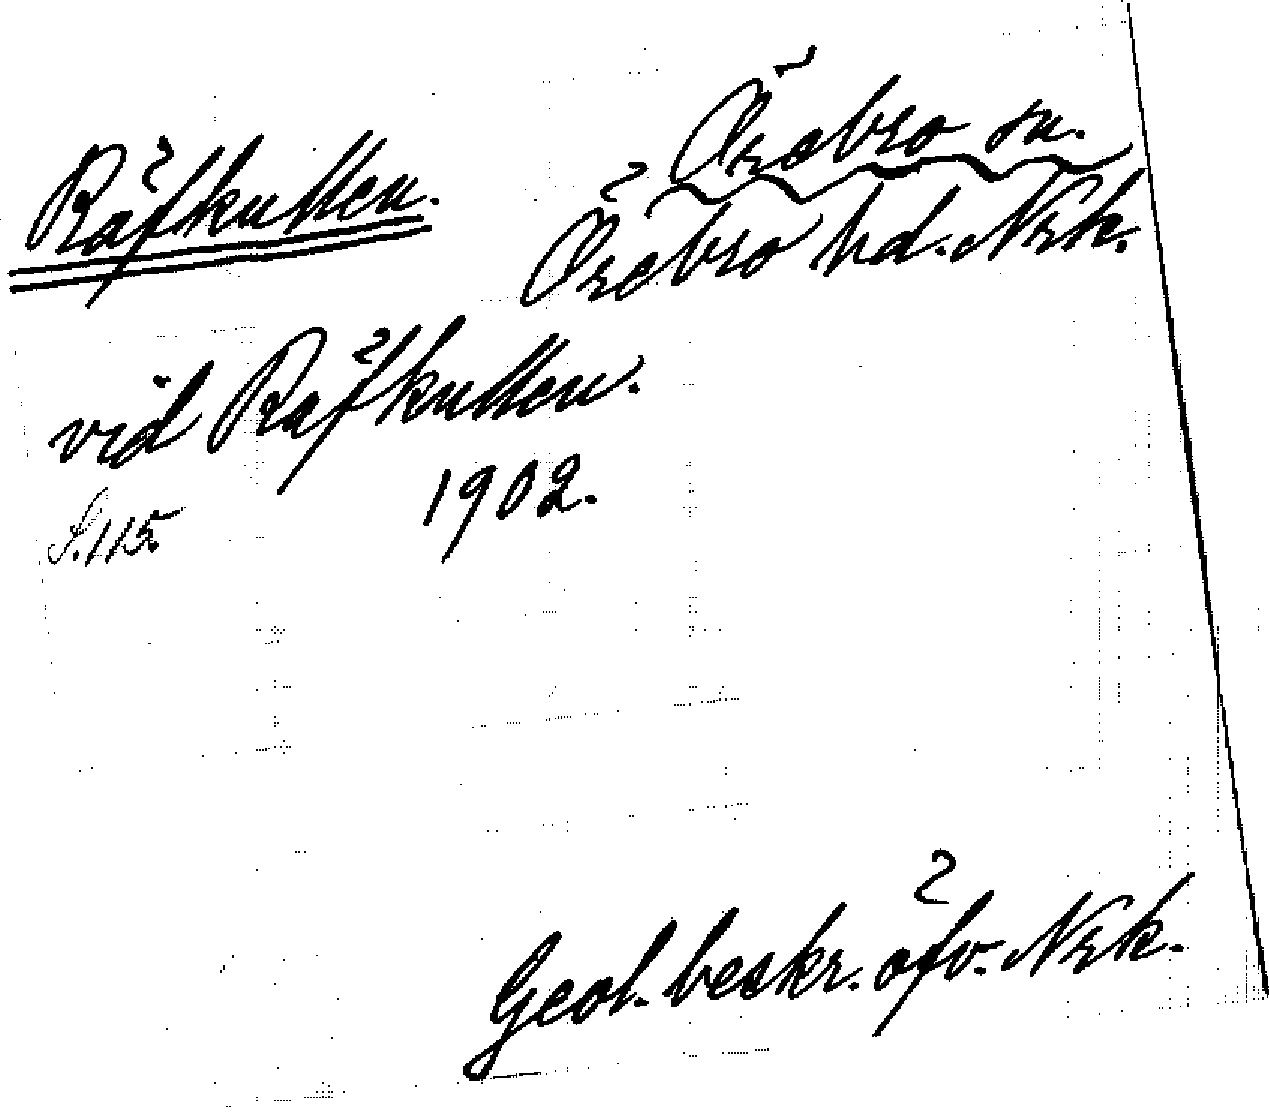 Räfkullen.
Örebro sn.
Örebro hd. Nrk.
vid Räfkullen.
1902.
S. 115.
Geol. beskr. öfv. Nrk.